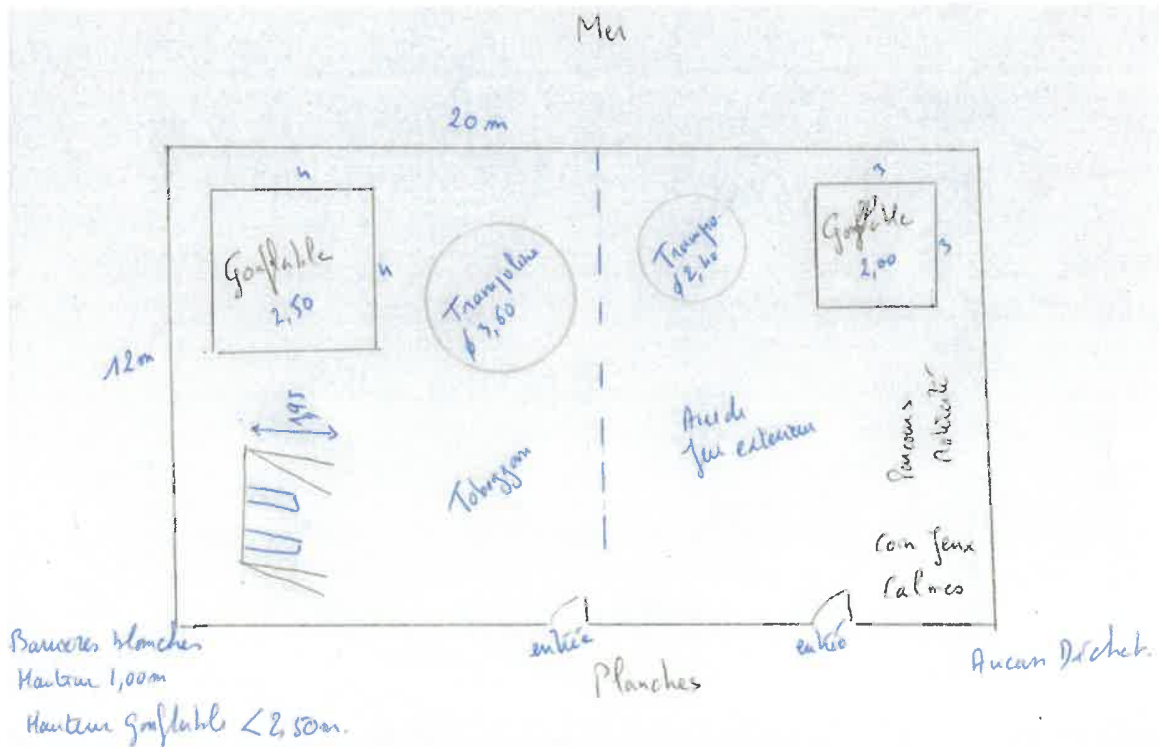 Mer
20 m
4
Gonflable
4
2,50
Trampoline
ϕ 3,60
Trampo
ϕ 2,40
3
Gonflable
3
2,00
12m
1,95
Toboggan
Aire de
Jeu exterieur
Parcours
motricité
Coin Jeux
Calmes
entrée
entrée
Planches
Barrieres blanches
Hauteur 1,00m
Hauteur gonflable < 2,50m.
Aucun Déchet.